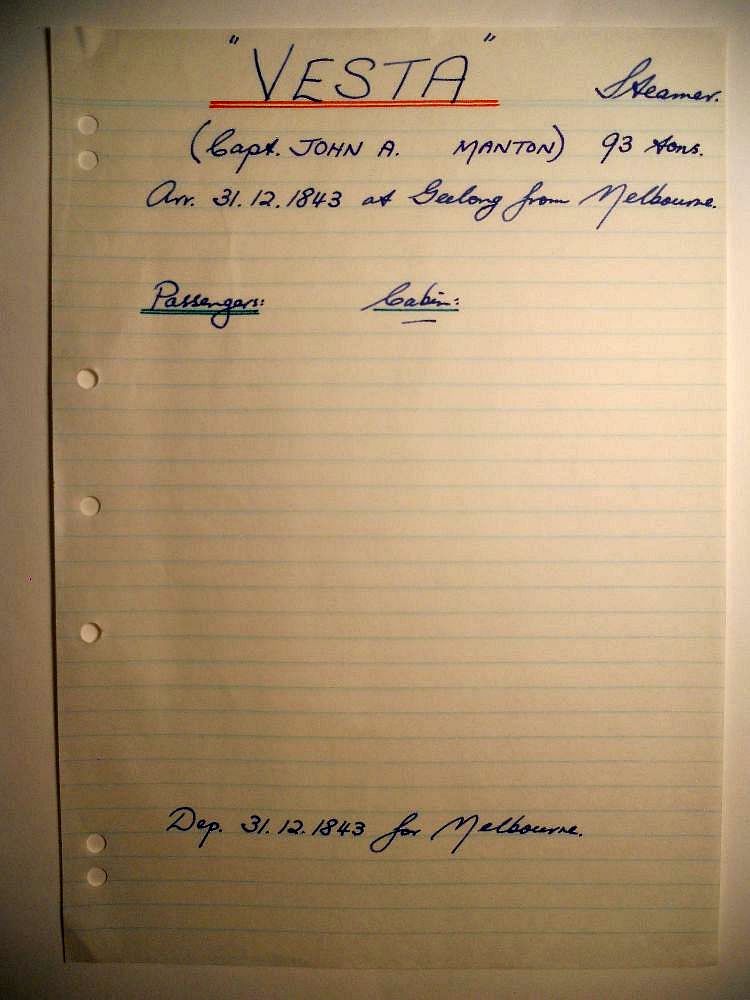 "VESTA" Steamer.
(Capt. JOHN A. MANTON) 93 tons.
Arr. 31.12.1843 at Geelong from Melbourne.
Passengers: Cabin:
Dep. 31.12.1843 for Melbourne.